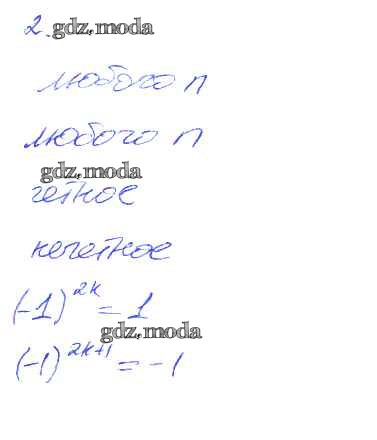 2. gdz.moda
любого n
любого n
gdz.moda
четное
нечетное
(-1)^{2k} = 1
gdz.moda
(-1)^{2k+1} = -1